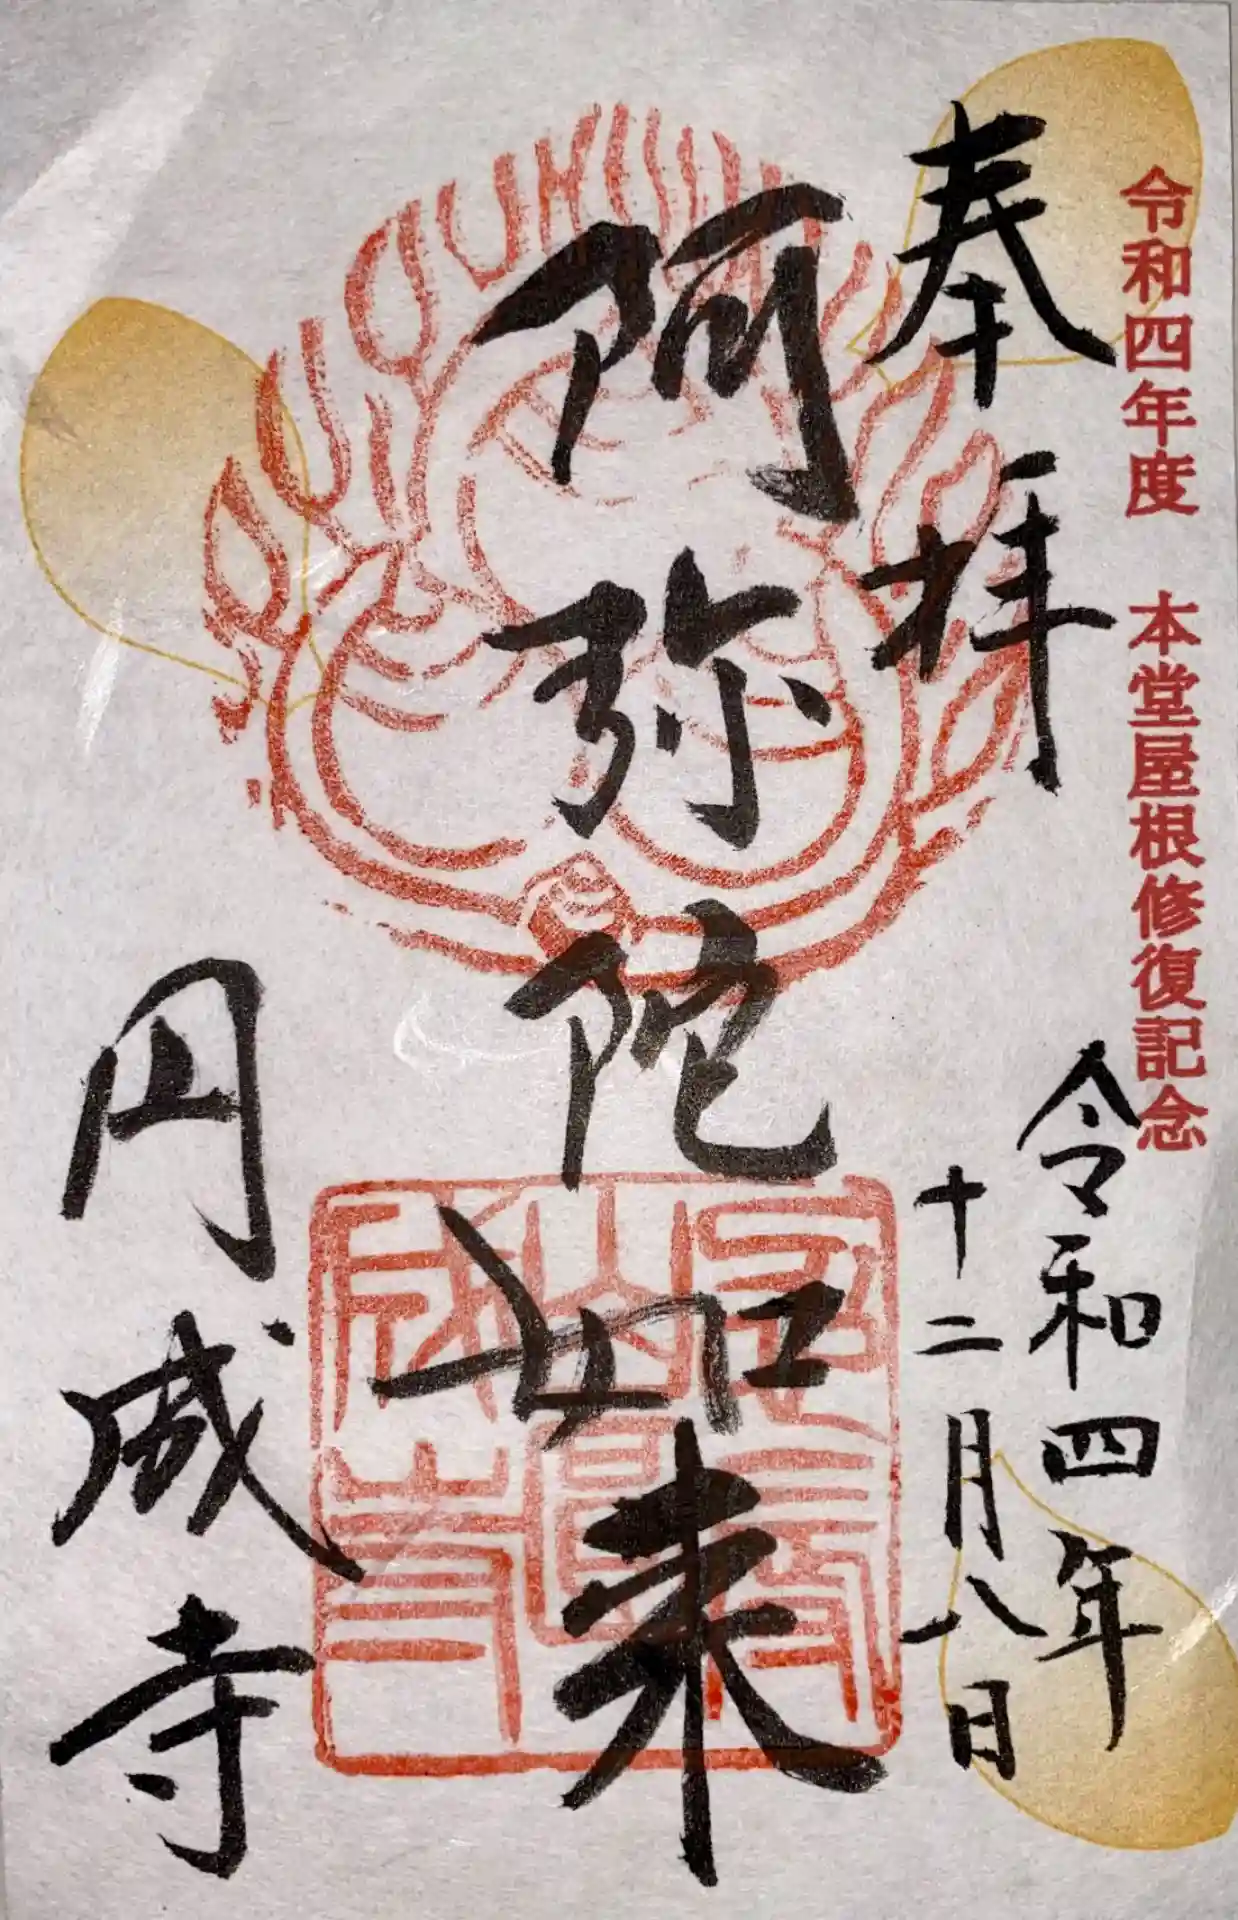 令和四年度　本堂屋根修復記念
奉拝
令和四年
十二月八日
阿弥陀如来
円成寺